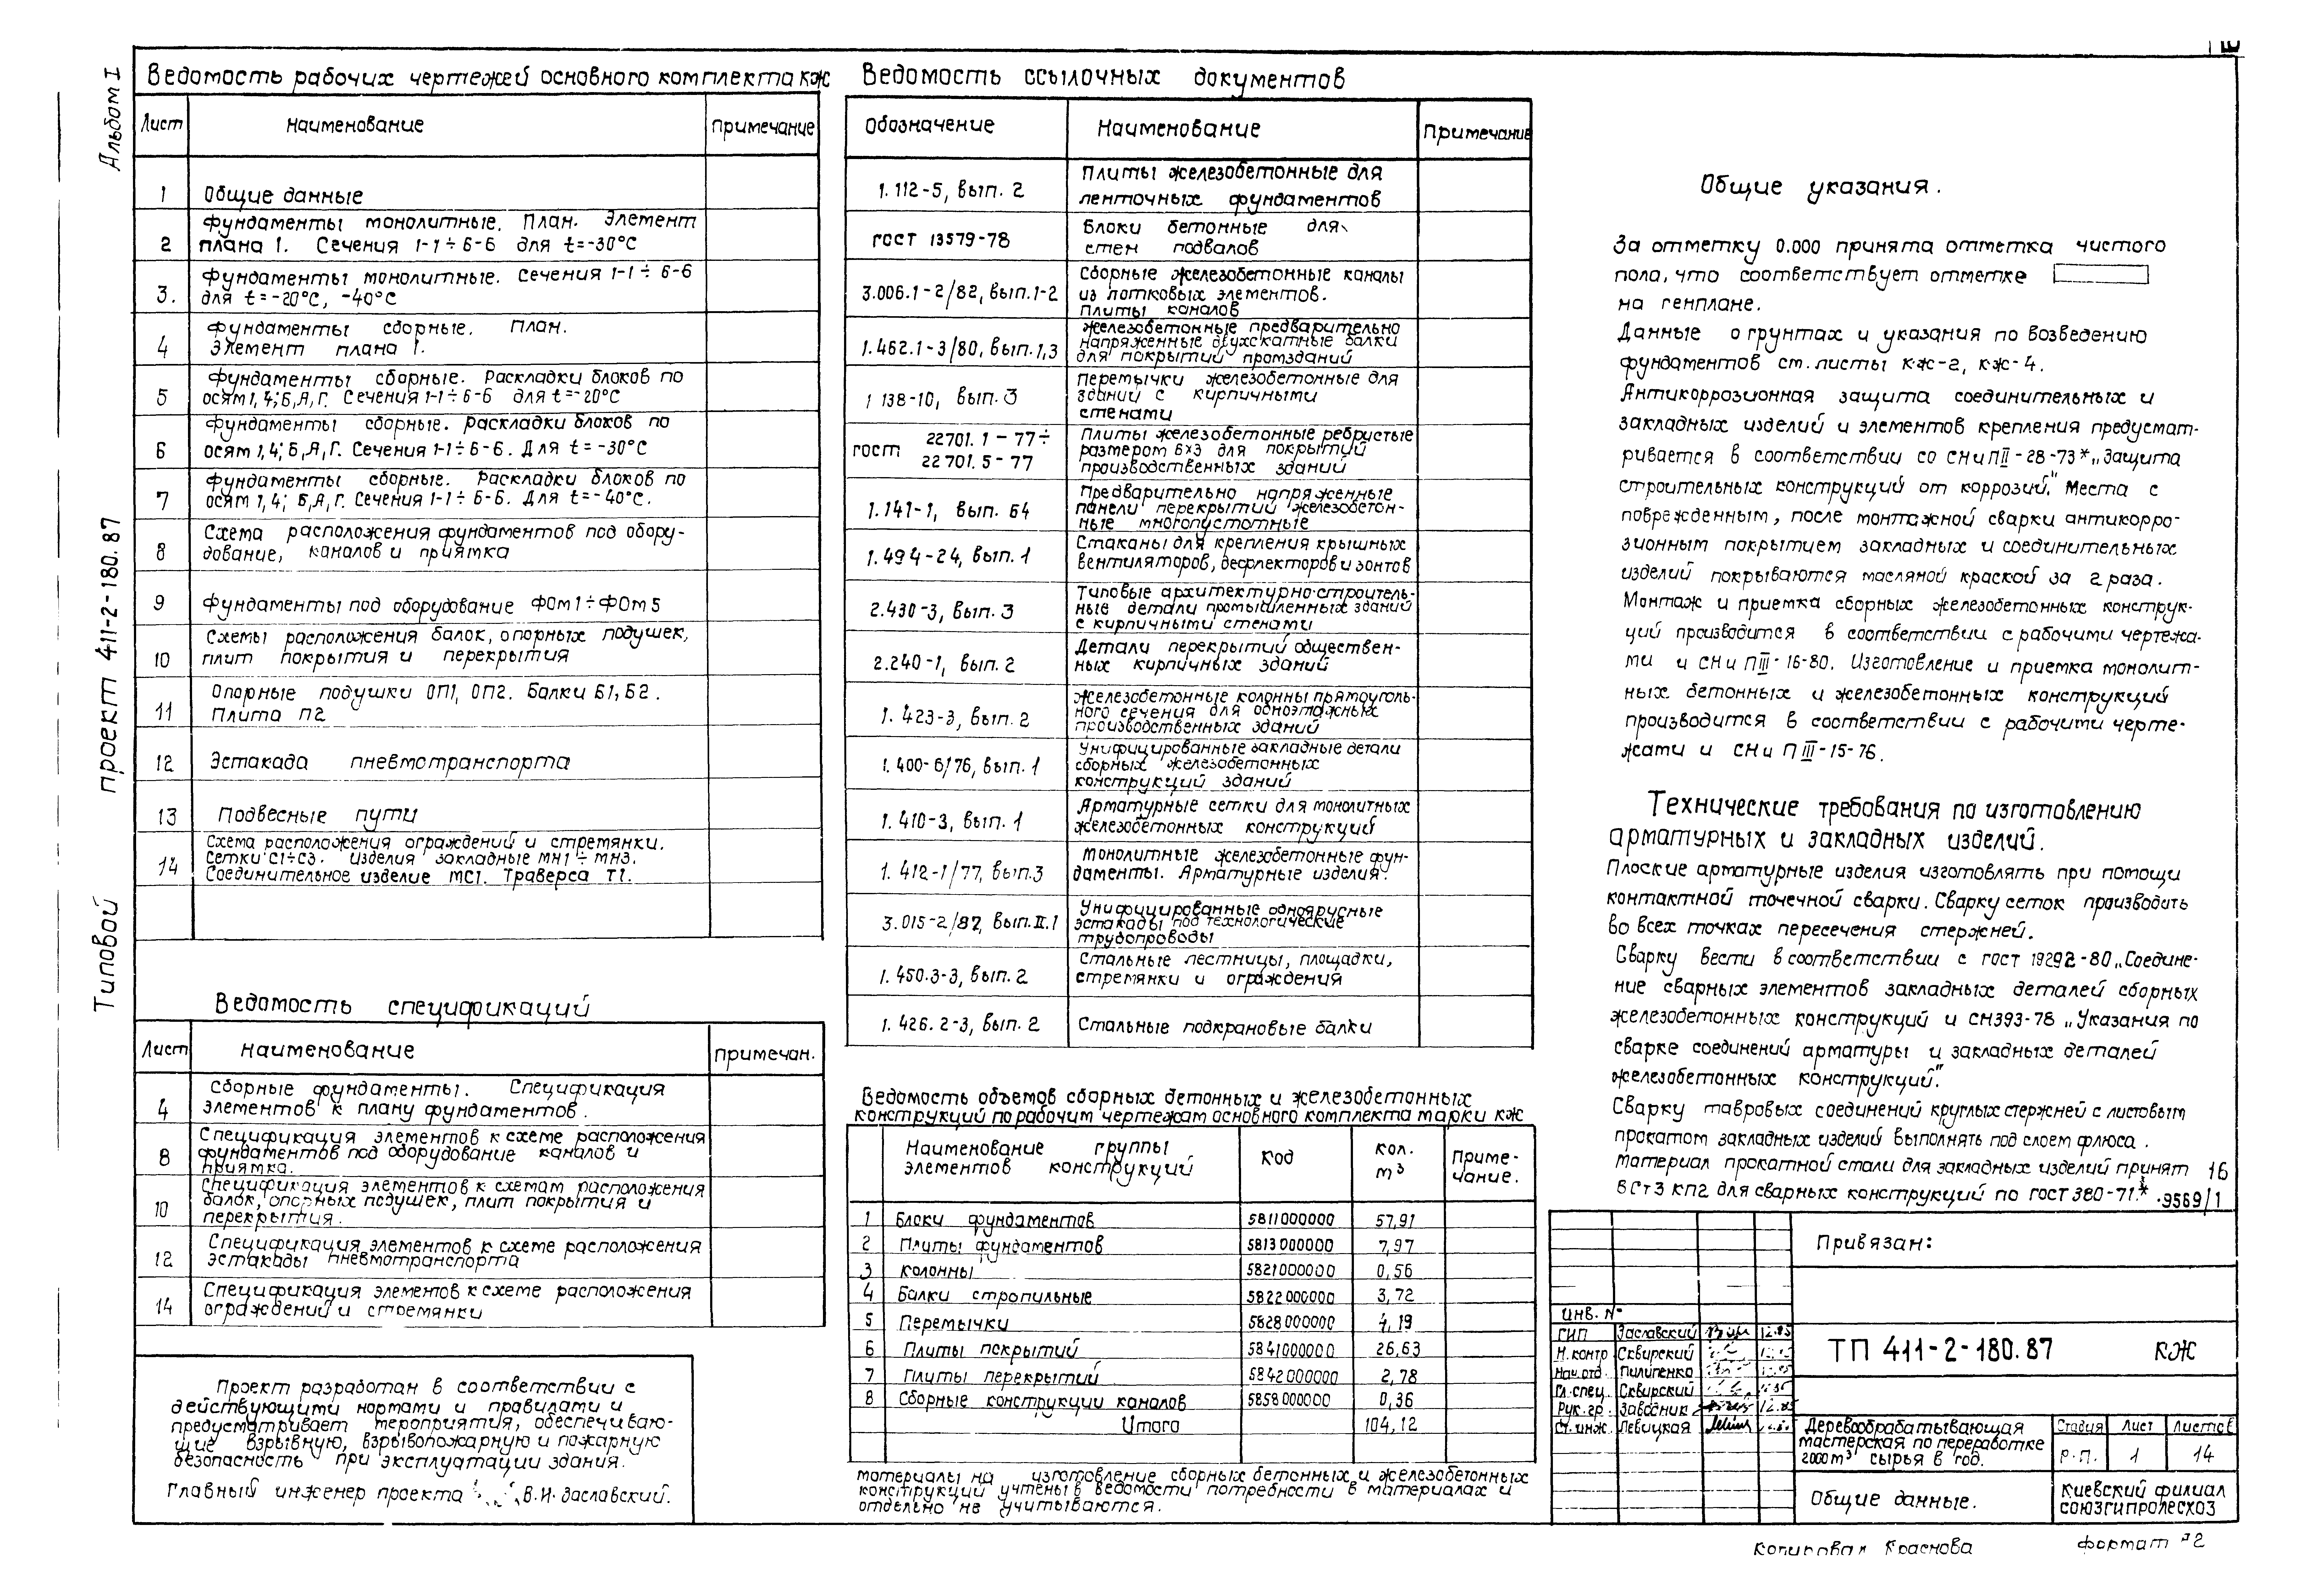 Альбом I
Типовой проект 411-2-180.87
Ведомость рабочих чертежей основного комплекта КЖ
Лист Наименование Примечание
1 Общие данные
Фундаменты монолитные. План. Элемент
2 плана 1. Сечения 1-1÷6-6 для t=-30°С
Фундаменты монолитные. Сечения 1-1÷6-6
3. для t=-20°С, -40°С
Фундаменты сборные. План.
4 Элемент плана 1.
Фундаменты сборные. Раскладки блоков по
5 осям 1,4; Б,А,Г. Сечения 1-1÷6-6 для t=-20°С
Фундаменты сборные. Раскладки блоков по
6 осям 1,4; Б,А,Г. Сечения 1-1÷6-6. Для t=-30°С
Фундаменты сборные. Раскладки блоков по
7 осям 1,4; Б,А,Г. Сечения 1-1÷6-6. Для t=-40°С.
Схема расположения фундаментов под обору-
8 дование, каналов и приямка
9 Фундаменты под оборудование ФОм1÷ФОм5
Схемы расположения балок, опорных подушек,
10 плит покрытия и перекрытия
Опорные подушки ОП1, ОП2. Балки Б1, Б2.
11 Плита П2
12 Эстакада пневмотранспорта
13 Подвесные пути
Схема расположения ограждений и стремянки.
14 Сетки С1÷С3. Изделия закладные МН1÷МН3.
Соединительное изделие МС1. Траверса Т1.
Ведомость спецификаций
Лист Наименование Примечан.
Сборные фундаменты. Спецификация
4 элементов к плану фундаментов.
Спецификация элементов к схеме расположения
8 фундаментов под оборудование каналов и
приямка.
Спецификация элементов к схемам расположения
10 балок, опорных подушек, плит покрытия и
перекрытия.
Спецификация элементов к схеме расположения
12 эстакады пневмотранспорта
Спецификация элементов к схеме расположения
14 ограждений и стремянки
Проект разработан в соответствии с
действующими нормами и правилами и
предусматривает мероприятия, обеспечиваю-
щие взрывную, взрывопожарную и пожарную
безопасность при эксплуатации здания.
Главный инженер проекта В.И. Заславский.
Ведомость ссылочных документов
Обозначение Наименование Примечание
1.112-5, вып. 2 Плиты железобетонные для
ленточных фундаментов
ГОСТ 13579-78 Блоки бетонные для
стен подвалов
3.006.1-2/82, вып.1-2 Сборные железобетонные каналы
из лотковых элементов.
Плиты каналов
1.462.1-3/80, вып.1,3 Железобетонные предварительно
напряженные двухскатные балки
для покрытий промзданий
1 138-10, вып. 3 Перемычки железобетонные для
зданий с кирпичными
стенами
ГОСТ 22701.1-77÷ 22701.5-77 Плиты железобетонные ребристые
размером 6х3 для покрытий
производственных зданий
1.141-1, вып. 64 Предварительно напряженные
панели перекрытий железобетон-
ные многопустотные
1.494-24, вып. 1 Стаканы для крепления крышных
вентиляторов, дефлекторов и зонтов
2.430-3, вып. 3 Типовые архитектурно-строитель-
ные детали промышленных зданий
с кирпичными стенами
2.240-1, вып. 2 Детали перекрытий обществен-
ных кирпичных зданий
1.423-3, вып. 2 Железобетонные колонны прямоуголь-
ного сечения для одноэтажных
производственных зданий
1.400-6/76, вып. 1 Унифицированные закладные детали
сборных железобетонных
конструкций зданий
1.410-3, вып. 1 Арматурные сетки для монолитных
железобетонных конструкций
1.412-1/77, вып.3 Монолитные железобетонные фун-
даменты. Арматурные изделия
3.015-2/82, вып.II.1 Унифицированные одноярусные
эстакады под технологические
трубопроводы
1.450.3-3, вып. 2 Стальные лестницы, площадки,
стремянки и ограждения
1.426.2-3, вып. 2 Стальные подкрановые балки
Ведомость объемов сборных бетонных и железобетонных
конструкций по рабочим чертежам основного комплекта марки КЖ
Наименование группы элементов конструкций Код Кол. м³ Приме-чание.
1 Блоки фундаментов 5811000000 57,91
2 Плиты фундаментов 5813000000 7,97
3 Колонны 5821000000 0,56
4 Балки стропильные 5822000000 3,72
5 Перемычки 5828000000 4,19
6 Плиты покрытий 5841000000 26,63
7 Плиты перекрытий 5842000000 2,78
8 Сборные конструкции каналов 5858000000 0,36
Итого 104,12
Материалы на изготовление сборных бетонных и железобетонных
конструкций учтены в ведомости потребности в материалах и
отдельно не учитываются.
Общие указания.
За отметку 0.000 принята отметка чистого
пола, что соответствует отметке
на генплане.
Данные о грунтах и указания по возведению
фундаментов см. листы КЖ-2, КЖ-4.
Антикоррозионная защита соединительных и
закладных изделий и элементов крепления предусмат-
ривается в соответствии со СНиП II-28-73* „Защита
строительных конструкций от коррозий." Места с
поврежденным, после монтажной сварки антикорро-
зионным покрытием закладных и соединительных
изделий покрываются масляной краской за 2 раза.
Монтаж и приемка сборных железобетонных конструк-
ций производится в соответствии с рабочими чертежа-
ми и СНиП III-16-80. Изготовление и приемка монолит-
ных бетонных и железобетонных конструкций
производится в соответствии с рабочими черте-
жами и СНиП III-15-76.
Технические требования по изготовлению
арматурных и закладных изделий.
Плоские арматурные изделия изготовлять при помощи
контактной точечной сварки. Сварку сеток производить
во всех точках пересечения стержней.
Сварку вести в соответствии с ГОСТ 19292-80 „Соедине-
ние сварных элементов закладных деталей сборных
железобетонных конструкций и СН393-78 „Указания по
сварке соединений арматуры и закладных деталей
железобетонных конструкций."
Сварку тавровых соединений круглых стержней с листовым
прокатом закладных изделий выполнять под слоем флюса.
Материал прокатной стали для закладных изделий принят 16
ВСт3 кп2 для сварных конструкций по ГОСТ 380-71.* 9569/1
Привязан:
Инв. №
ГИП Заславский 12.85
Н.контр Сквирский
Нач.отд. Пилипенко
Гл.спец. Сквирский
Рук.гр. Завсоник 12.85
Ст.инж. Левицкая
ТП 411-2-180.87 КЖ
Деревообрабатывающая
мастерская по переработке
2000м³ сырья в год.
Стадия Лист Листов
Р.П. 1 14
Общие данные.
Киевский филиал
СОЮЗГИПРОЛЕСХОЗ
Копировал Краснова формат 2